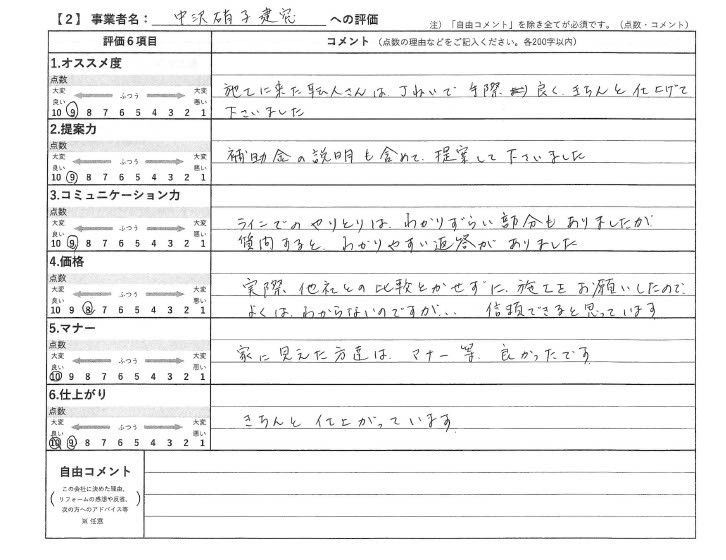 【2】事業者名： 中沢硝子建窓 への評価
注）「自由コメント」を除き全てが必須です。（点数・コメント）
評価6項目 コメント（点数の理由などをご記入ください。各200字以内）
1.オススメ度
点数
大変良い ふつう 大変悪い
10 9 8 7 6 5 4 3 2 1
施工に来た職人さんは、丁ねいで手際良く、きちんと仕上げて
下さいました
2.提案力
点数
大変良い ふつう 大変悪い
10 9 8 7 6 5 4 3 2 1
補助金の説明も含めて、提案して下さいました
3.コミュニケーション力
点数
大変良い ふつう 大変悪い
10 9 8 7 6 5 4 3 2 1
ラインでのやりとりは、わかりずらい部分もありましたが
質問すると、わかりやすい返答がありました
4.価格
点数
大変良い ふつう 大変悪い
10 9 8 7 6 5 4 3 2 1
実際、他社との比較とかせずに、施工をお願いしたので、
よくは、わからないのですが、、、 信頼できると思っています
5.マナー
点数
大変良い ふつう 大変悪い
10 9 8 7 6 5 4 3 2 1
家に見えた方達は、マナー等、良かったです
6.仕上がり
点数
大変良い ふつう 大変悪い
10 9 8 7 6 5 4 3 2 1
きちんと仕上がっています
自由コメント
（この会社に決めた理由、
リフォームの感想や反省、
次の方へのアドバイス等）
※任意